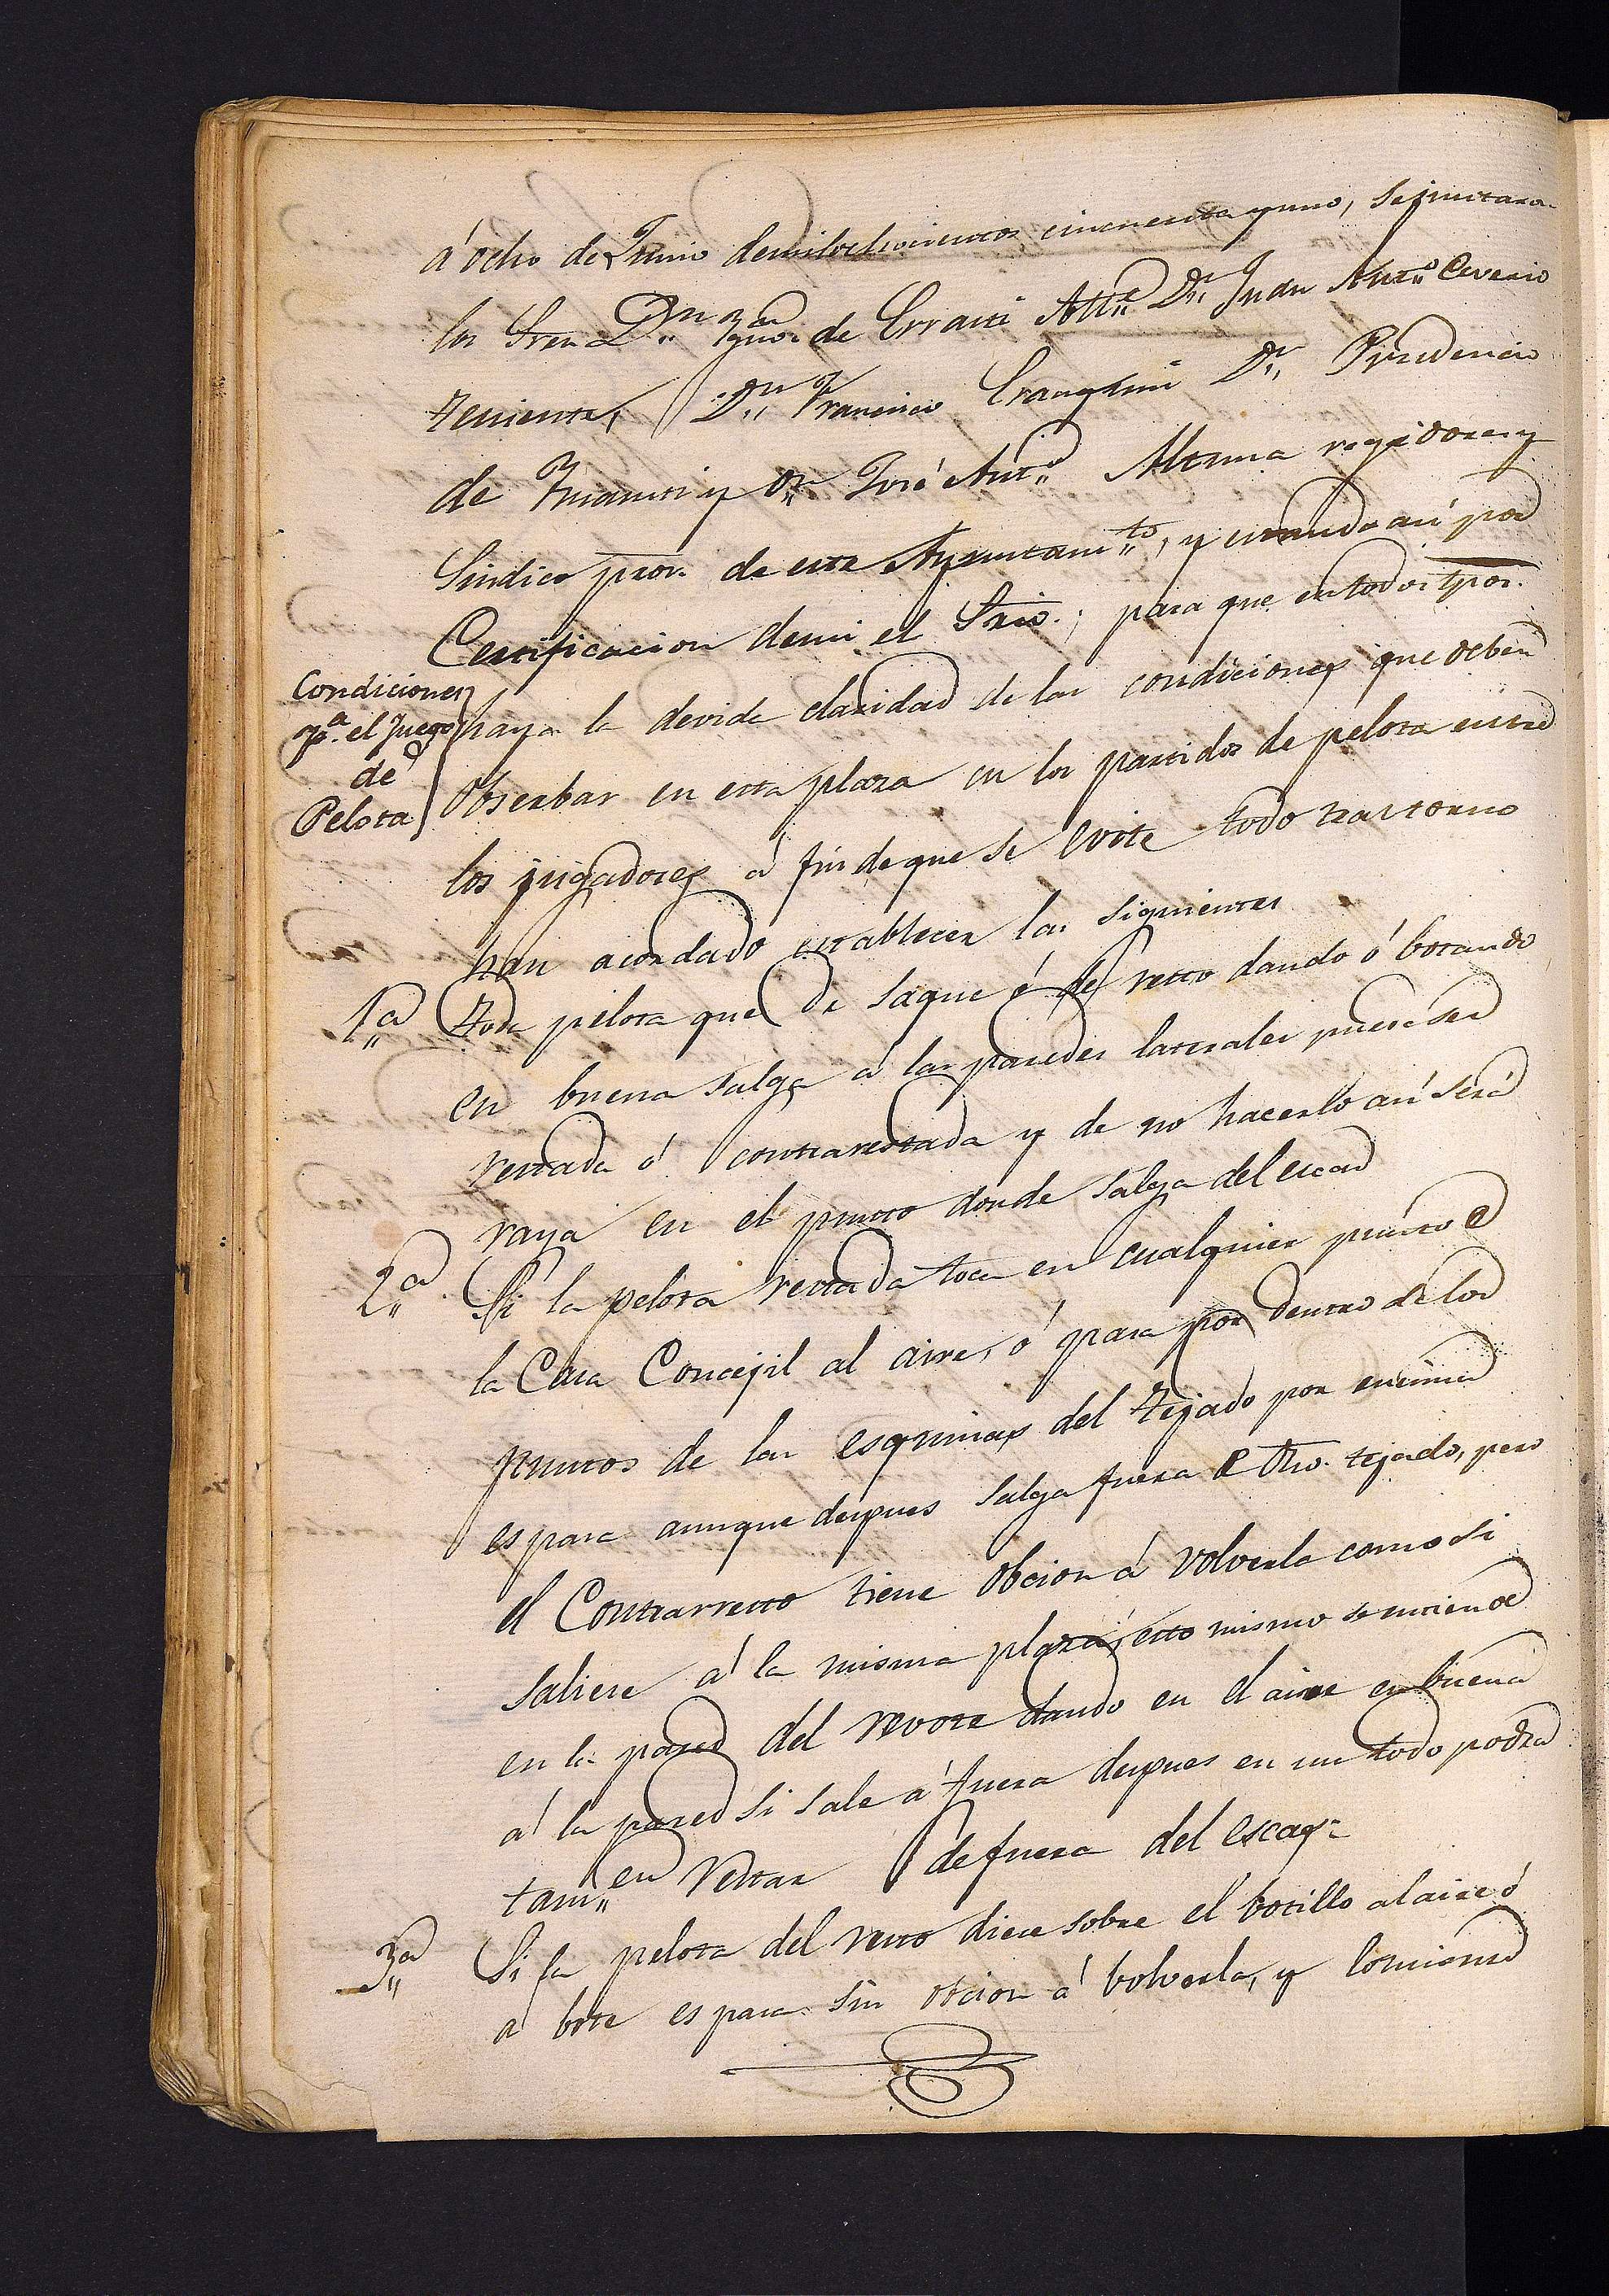 á ocho de Junio demilochocientos cincuenta y uno, se juntaron
los Sres Dn Ygno. de Errasti Alle Dn Juan Anto
teniente, Dn Francisco Dn Prudencio
de y Dn José Anto Altuna regidores y
Sindico pror. de este Ayuntamto, y estando así por
Certificacion demi el Srio.; para que entodos tpos.
Condiciones
pa. el Juego
de
Pelota
haya la devida claridad de las condiciones que deben
Obserbar en esta plaza en los partidos de pelota entre
los jugadores á fin de que se evite todo trastorno
han acordado establecer las siguientes
1a Toda pelota que de saque ó de resto dando ó botando
en buena salga á las paredes laterales puede ser
restada ó contrarestada y de no hacerlo así será
raya en el punto donde salga del escas
2a Si la pelota restada toca en cualquier punto e
la Casa Concejil al aire, ó pasa por dentro de los
puntos de las esquinas del tejado por encima
es para aunque despues salga fuera e dho. tejado, pero
el Contrarresto tiene obcion á volverla como si
saliese á la misma plaza; esto mismo se entiende
en la pared del revote dando en el aire en buena
á la pared si sale á fuera despues en un todo podra
tamen restar de fuera del escas
3a Si la pelota del resto diese sobre el botillo al aire ó
á bote es para sin obcion á bolverla, y